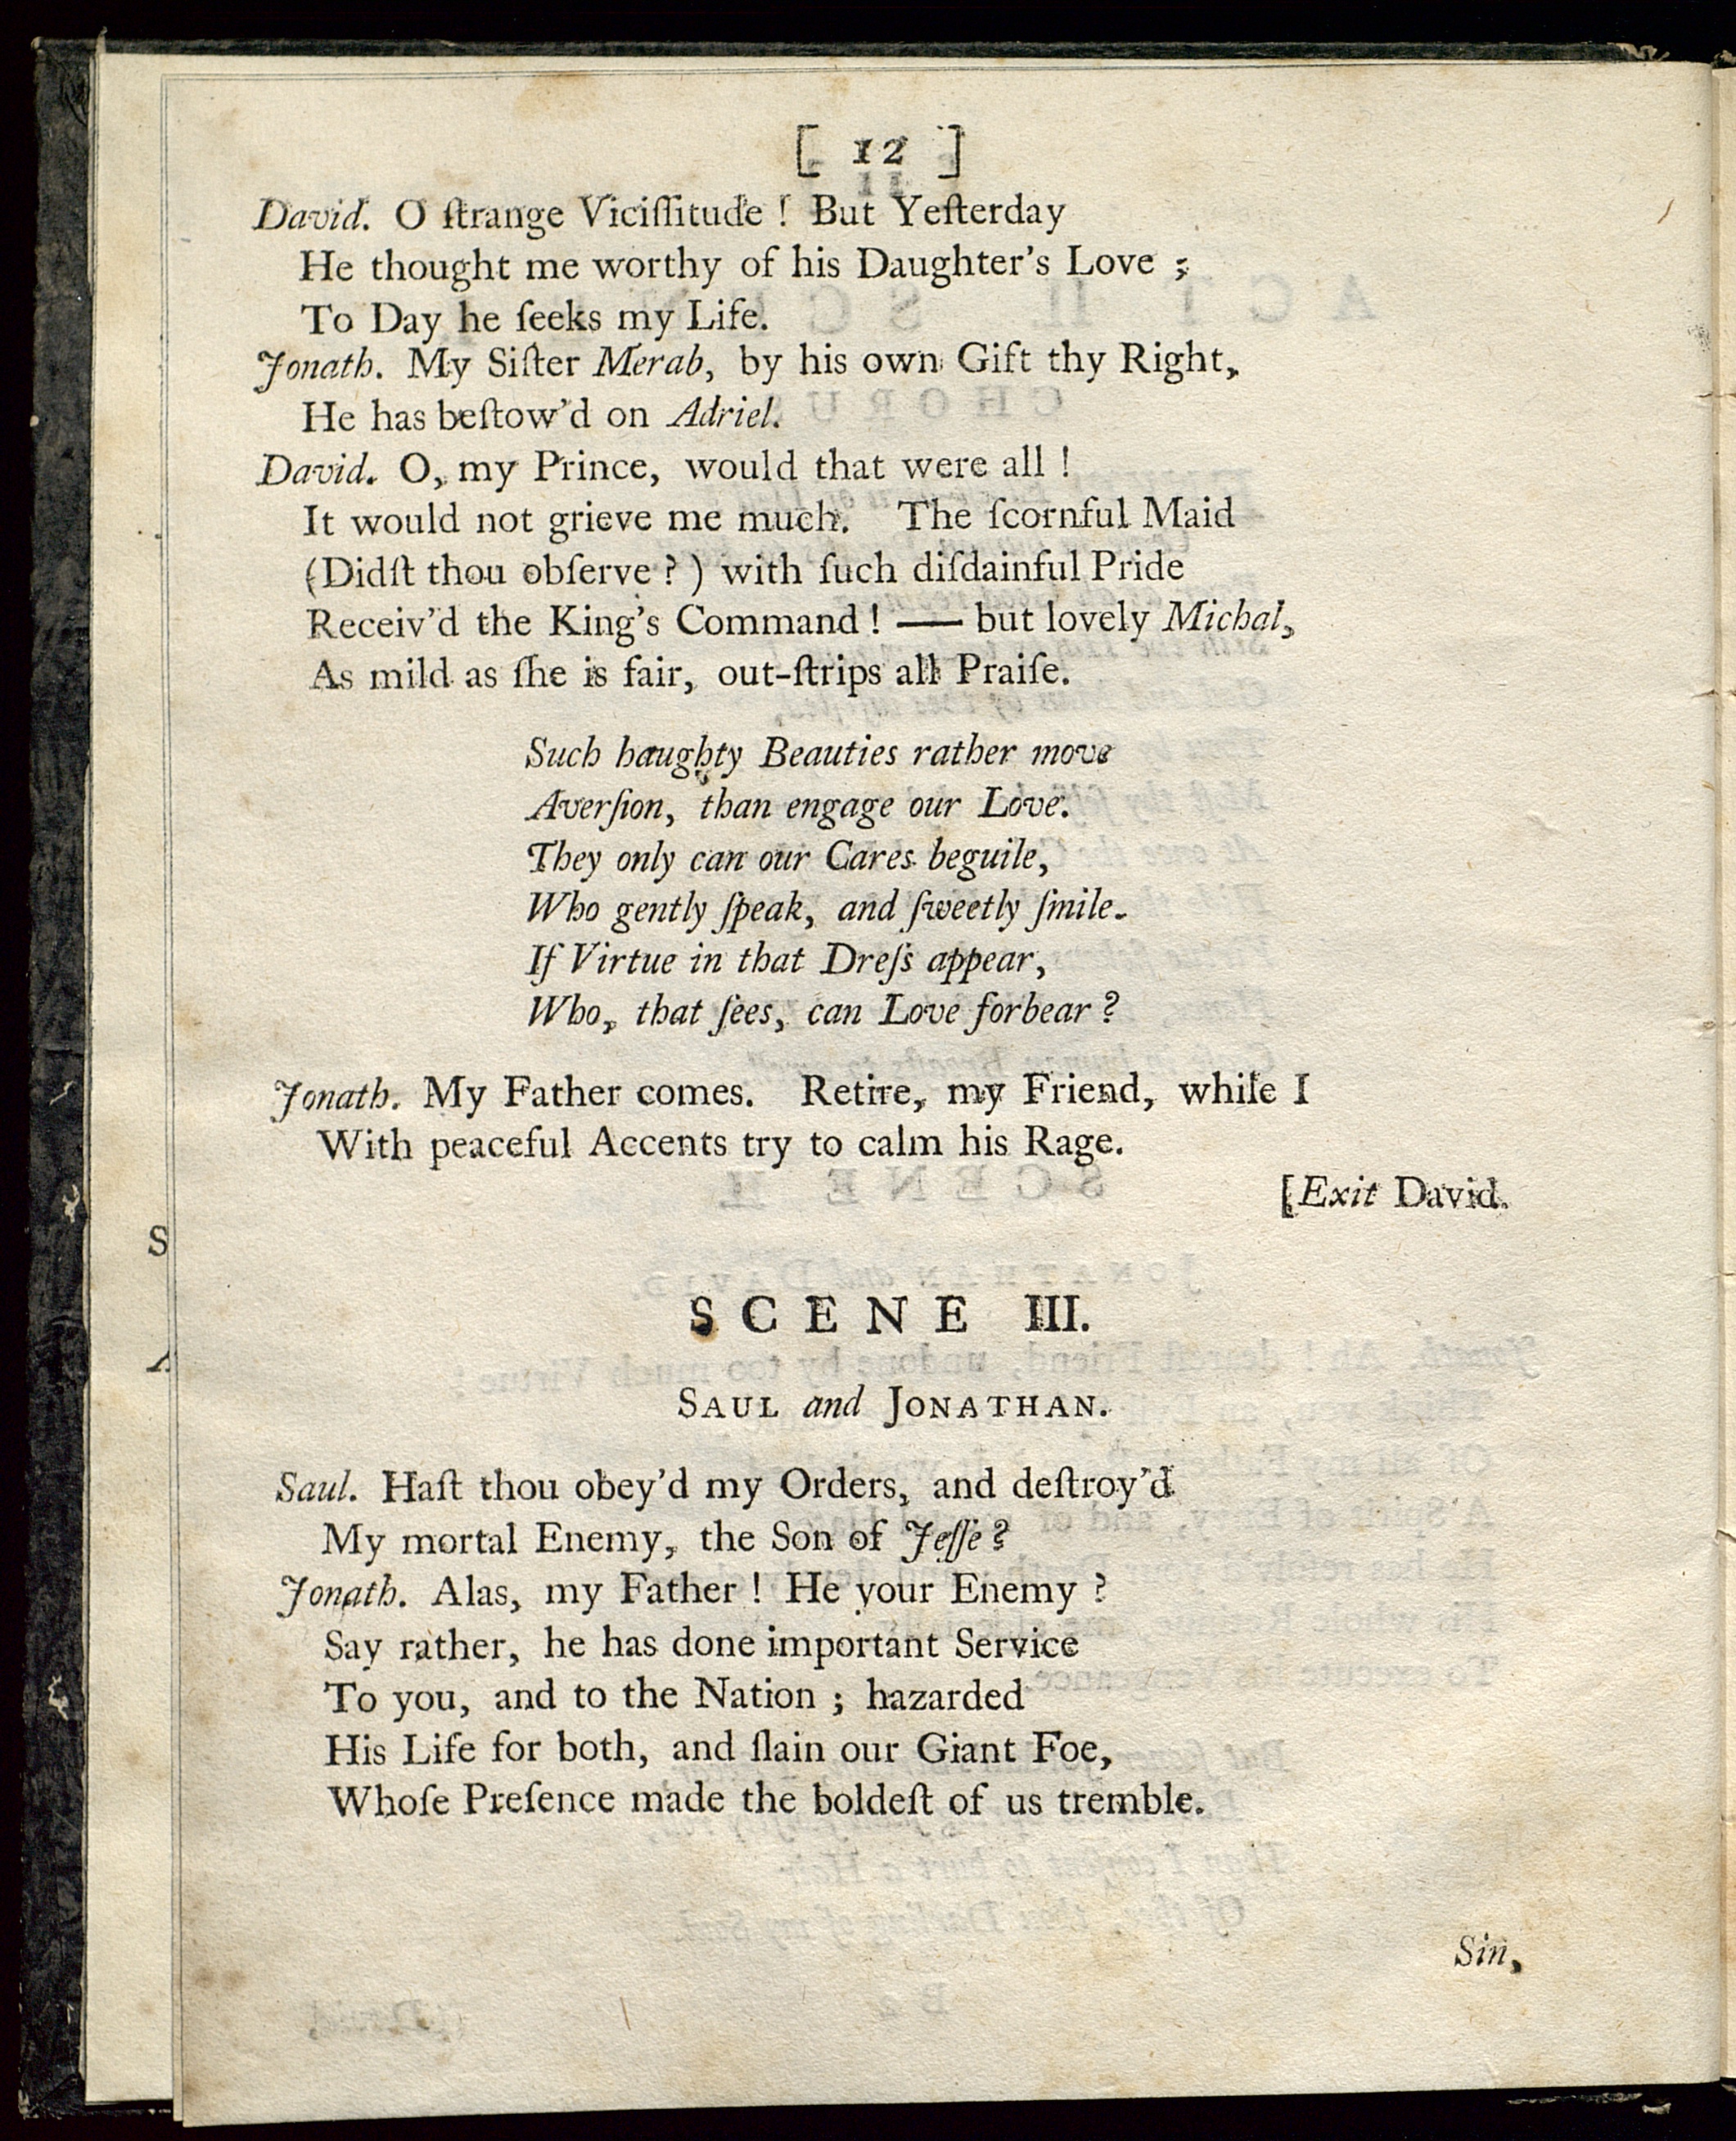 [ 12 ]
David. O ſtrange Viciſſitude ! But Yeſterday
He thought me worthy of his Daughter's Love ;
To Day he ſeeks my Life.
Jonath. My Siſter Merab, by his own Gift thy Right,
He has beſtow'd on Adriel.
David. O, my Prince, would that were all !
It would not grieve me much. The ſcornful Maid
(Didſt thou obſerve ? ) with ſuch diſdainful Pride
Receiv'd the King's Command ! — but lovely Michal,
As mild as ſhe is fair, out-ſtrips all Praiſe.
Such haughty Beauties rather move
Averſion, than engage our Love.
They only can our Cares beguile,
Who gently ſpeak, and ſweetly ſmile.
If Virtue in that Dreſs appear,
Who, that ſees, can Love forbear ?
Jonath. My Father comes. Retire, my Friend, while I
With peaceful Accents try to calm his Rage.
[Exit David.
SCENE III.
SAUL and JONATHAN.
Saul. Haſt thou obey'd my Orders, and deſtroy'd
My mortal Enemy, the Son of Jeſſe ?
Jonath. Alas, my Father ! He your Enemy ?
Say rather, he has done important Service
To you, and to the Nation ; hazarded
His Life for both, and ſlain our Giant Foe,
Whoſe Preſence made the boldeſt of us tremble.
Sin,